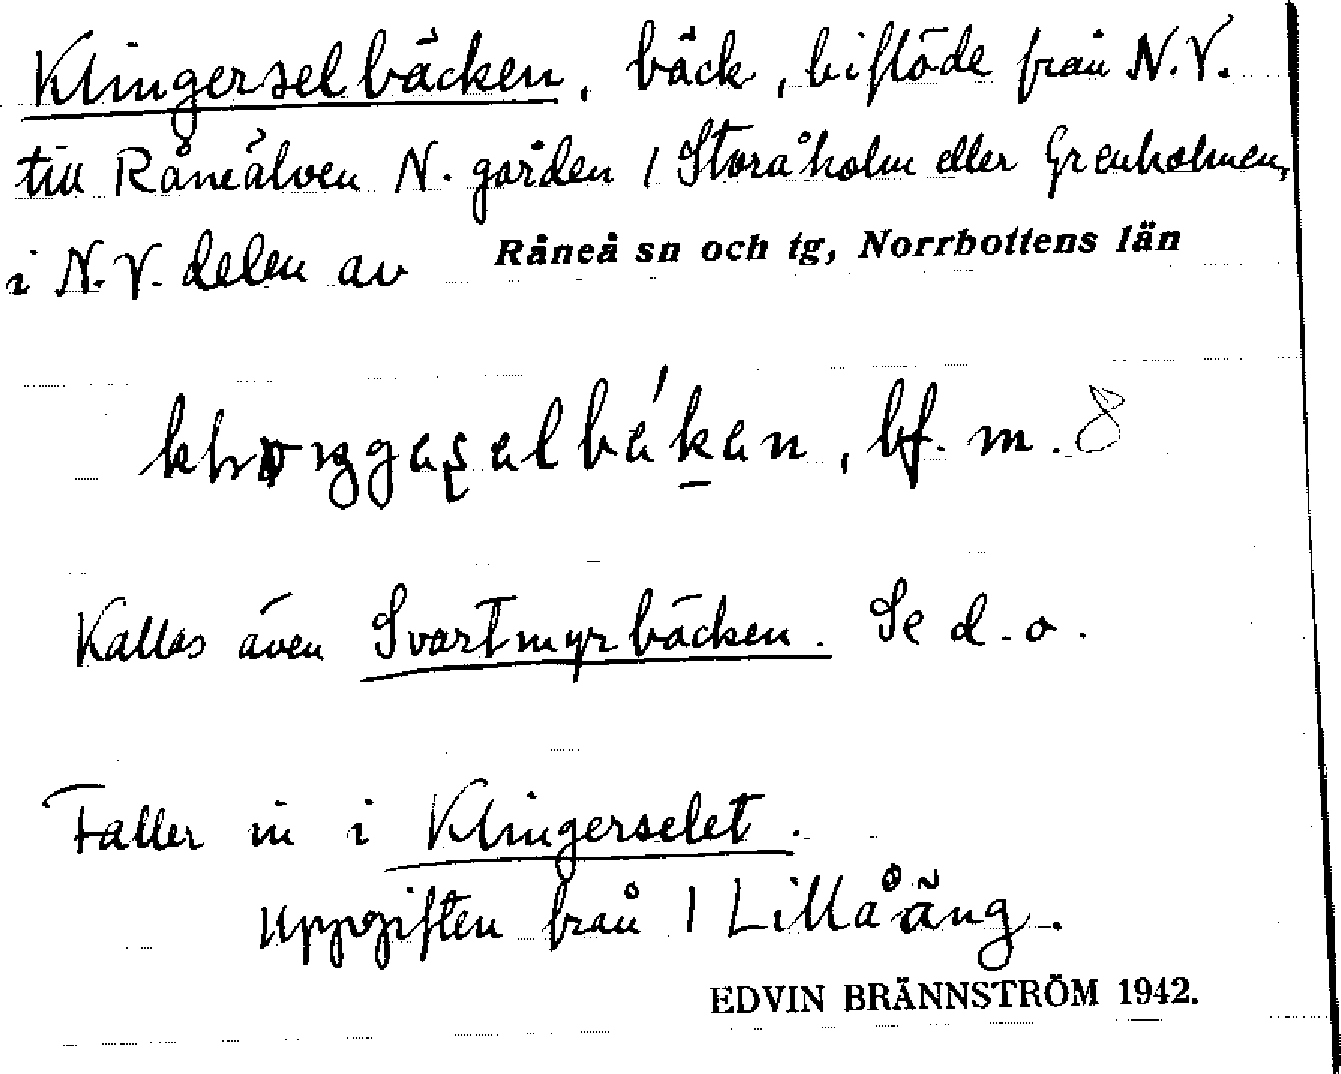 Klingerselbäcken, bäck, biflöde från N.V.
till Råneälven N. gården 1 Storåholm eller Grenholmen,
i N.V. delen av Råneå sn och tg, Norrbottens län
bf. m.
Kallas även Svartmyrbäcken. Se d.o.
Faller in i Klingerselet.
Uppgiften från 1 Lillåäng.
EDVIN BRÄNNSTRÖM 1942.